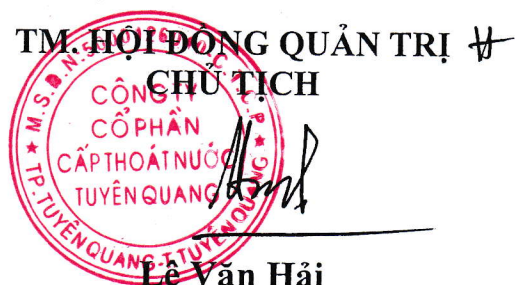 TM. HỘI ĐỒNG QUẢN TRỊ
CHỦ TỊCH
CÔNG TY
CỔ PHẦN
CẤP THOÁT NƯỚC
TUYÊN QUANG
TP. TUYÊN QUANG - T. TUYÊN QUANG
Lê Văn Hải